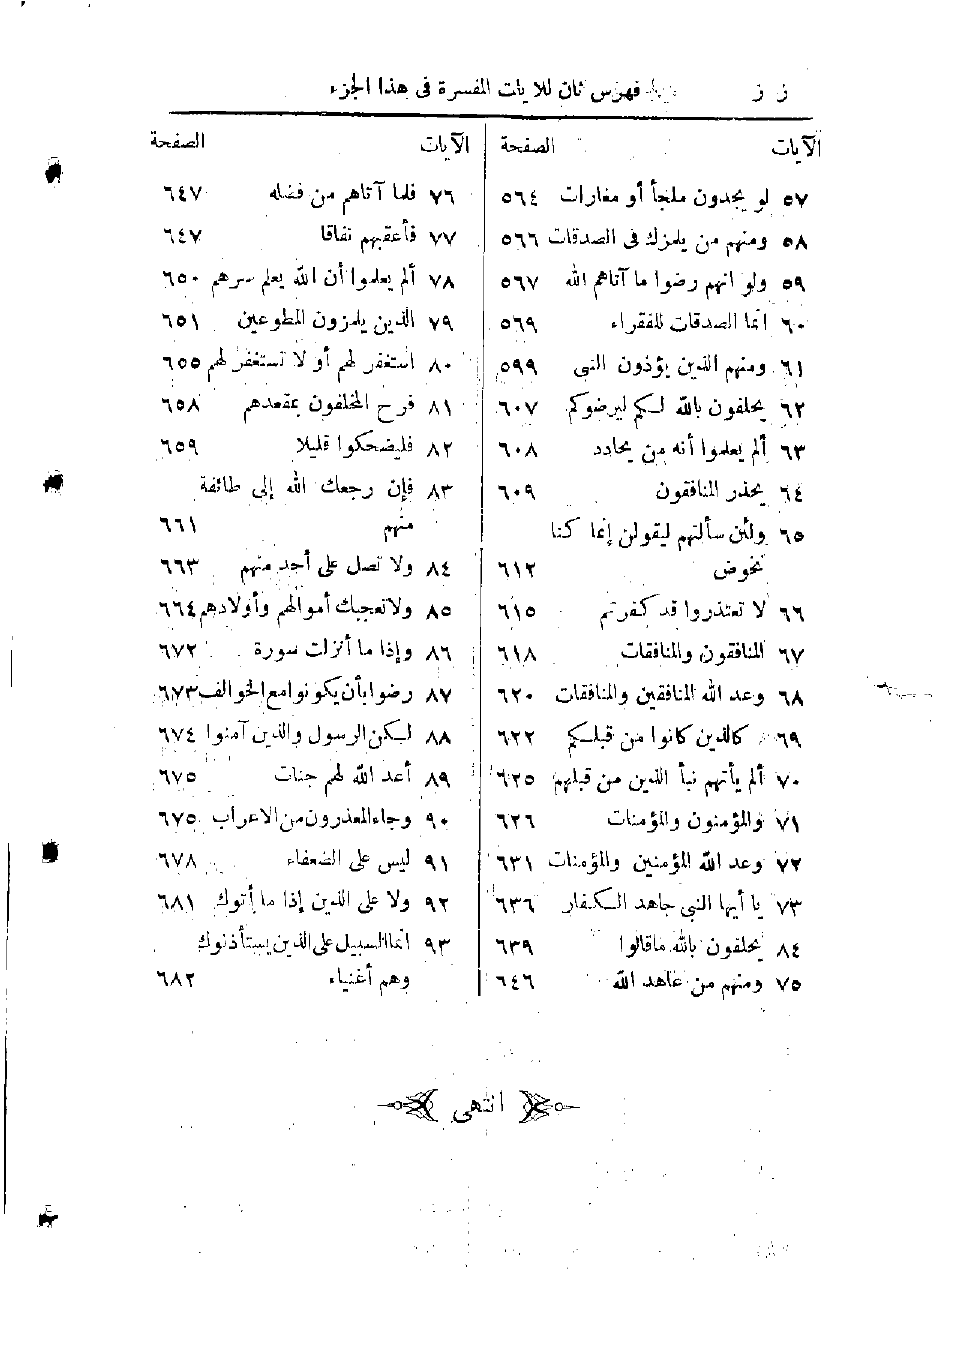 ز ز فهرس ثان للآيات المفسرة فى هذا الجزء
الآيات الصفحة
٥٧ لو يجدون ملجأ أو مغارات ٥٦٤
٥٨ ومنهم من يلمزك فى الصدقات ٥٦٦
٥٩ ولو انهم رضوا ما آتاهم الله ٥٦٧
٦٠ انما الصدقات للفقراء ٥٦٩
٦١ ومنهم الذين يؤذون النبى ٥٩٩
٦٢ يحلفون بالله لكم ليرضوكم ٦٠٧
٦٣ ألم يعلموا أنه من يحادد ٦٠٨
٦٤ يحذر المنافقون ٦٠٩
٦٥ ولئن سألتهم ليقولن إنما كنا
نخوض ٦١٢
٦٦ لا تعتذروا قد كفرتم ٦١٥
٦٧ المنافقون والمنافقات ٦١٨
٦٨ وعد الله المنافقين والمنافقات ٦٢٠
٦٩ كالذين كانوا من قبلكم ٦٢٢
٧٠ ألم يأتهم نبأ الذين من قبلهم ٦٢٥
٧١ والمؤمنون والمؤمنات ٦٢٦
٧٢ وعد الله المؤمنين والمؤمنات ٦٣١
٧٣ يا أيها النبى جاهد الكفار ٦٣٦
٨٤ يحلفون بالله ماقالوا ٦٣٩
٧٥ ومنهم من عاهد الله ٦٤٦
الآيات الصفحة
٧٦ فلما آتاهم من فضله ٦٤٧
٧٧ فأعقبهم نفاقا ٦٤٧
٧٨ ألم يعلموا أن الله يعلم سرهم ٦٥٠
٧٩ الذين يلمزون المطوعين ٦٥١
٨٠ استغفر لهم أو لا تستغفر لهم ٦٥٥
٨١ فرح المخلفون بمقعدهم ٦٥٨
٨٢ فليضحكوا قليلا ٦٥٩
٨٣ فإن رجعك الله إلى طائفة
منهم ٦٦١
٨٤ ولا تصل على أحد منهم ٦٦٣
٨٥ ولا تعجبك أموالهم وأولادهم ٦٦٤
٨٦ وإذا ما أنزلت سورة ٦٧٢
٨٧ رضوا بأن يكونوا مع الخوالف ٦٧٣
٨٨ لكن الرسول والذين آمنوا ٦٧٤
٨٩ أعد الله لهم جنات ٦٧٥
٩٠ وجاء المعذرون من الاعراب ٦٧٥
٩١ ليس على الضعفاء ٦٧٨
٩٢ ولا على الذين إذا ما أتوك ٦٨١
٩٣ انما السبيل على الذين يستأذنوك
وهم أغنياء ٦٨٢
انتهى